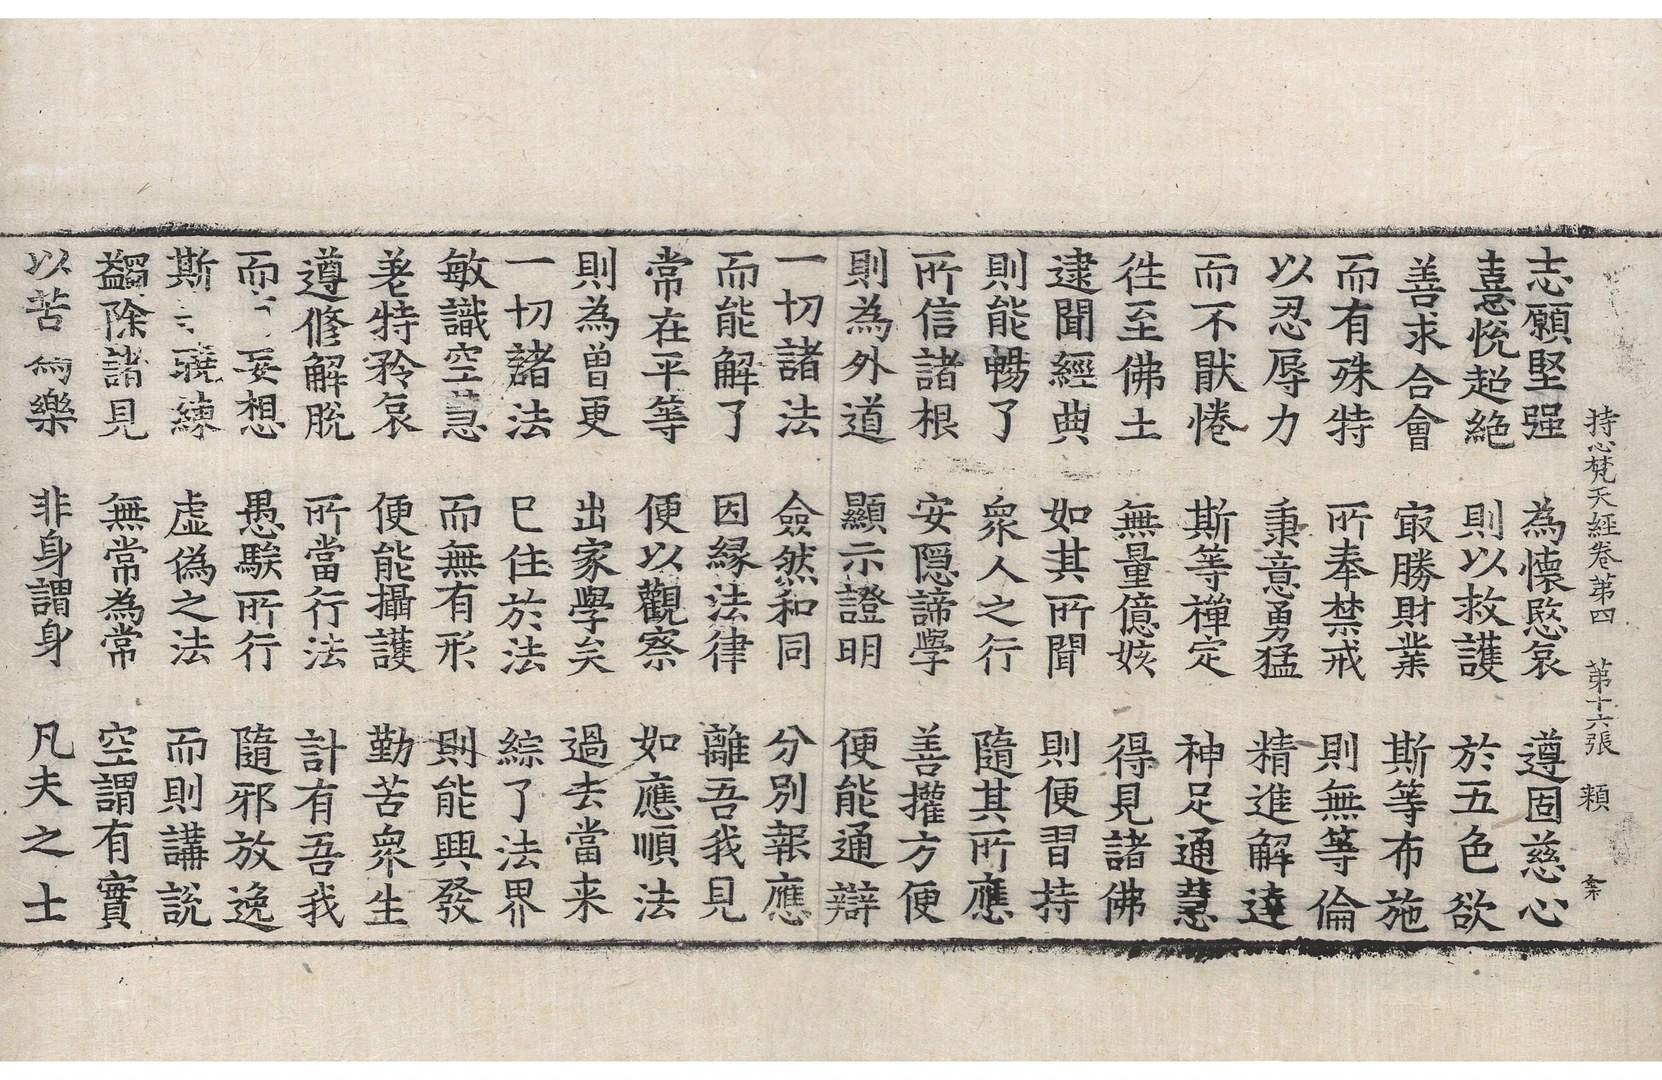 持心梵天經卷第四 第十六張 頛
志願堅强 為懷愍哀 遵固慈心
喜悅超絶 則以救護 於五色欲
善求合會 㝡勝財業 斯等布施
而有殊特 所奉禁戒 則無等倫
以忍辱力 秉意勇猛 精進解達
而不猒惓 斯等禪定 神足通慧
徃至佛土 無量億姟 得見諸佛
逮聞經典 如其所聞 則便習持
則能暢了 衆人之行 隨其所應
所信諸根 安隱諦學 善權方便
則為外道 顯示證明 便能通辯
一切諸法 僉然和同 分別報應
而能解了 因緣法律 離吾我見
常在平等 便以觀察 如應順法
則為曽更 出家學矣 過去當来
一切諸法 已住於法 綜了法界
敏識空慧 而無有形 則能興發
若特矜哀 便能攝護 勤苦衆生
遵修解脫 所當行法 計有吾我
而 妄想 愚騃所行 隨邪放逸
斯 曉練 虛偽之法 而則講説
蠲除諸見 無常為常 空謂有實
以苦為樂 非身謂身 凡夫之士